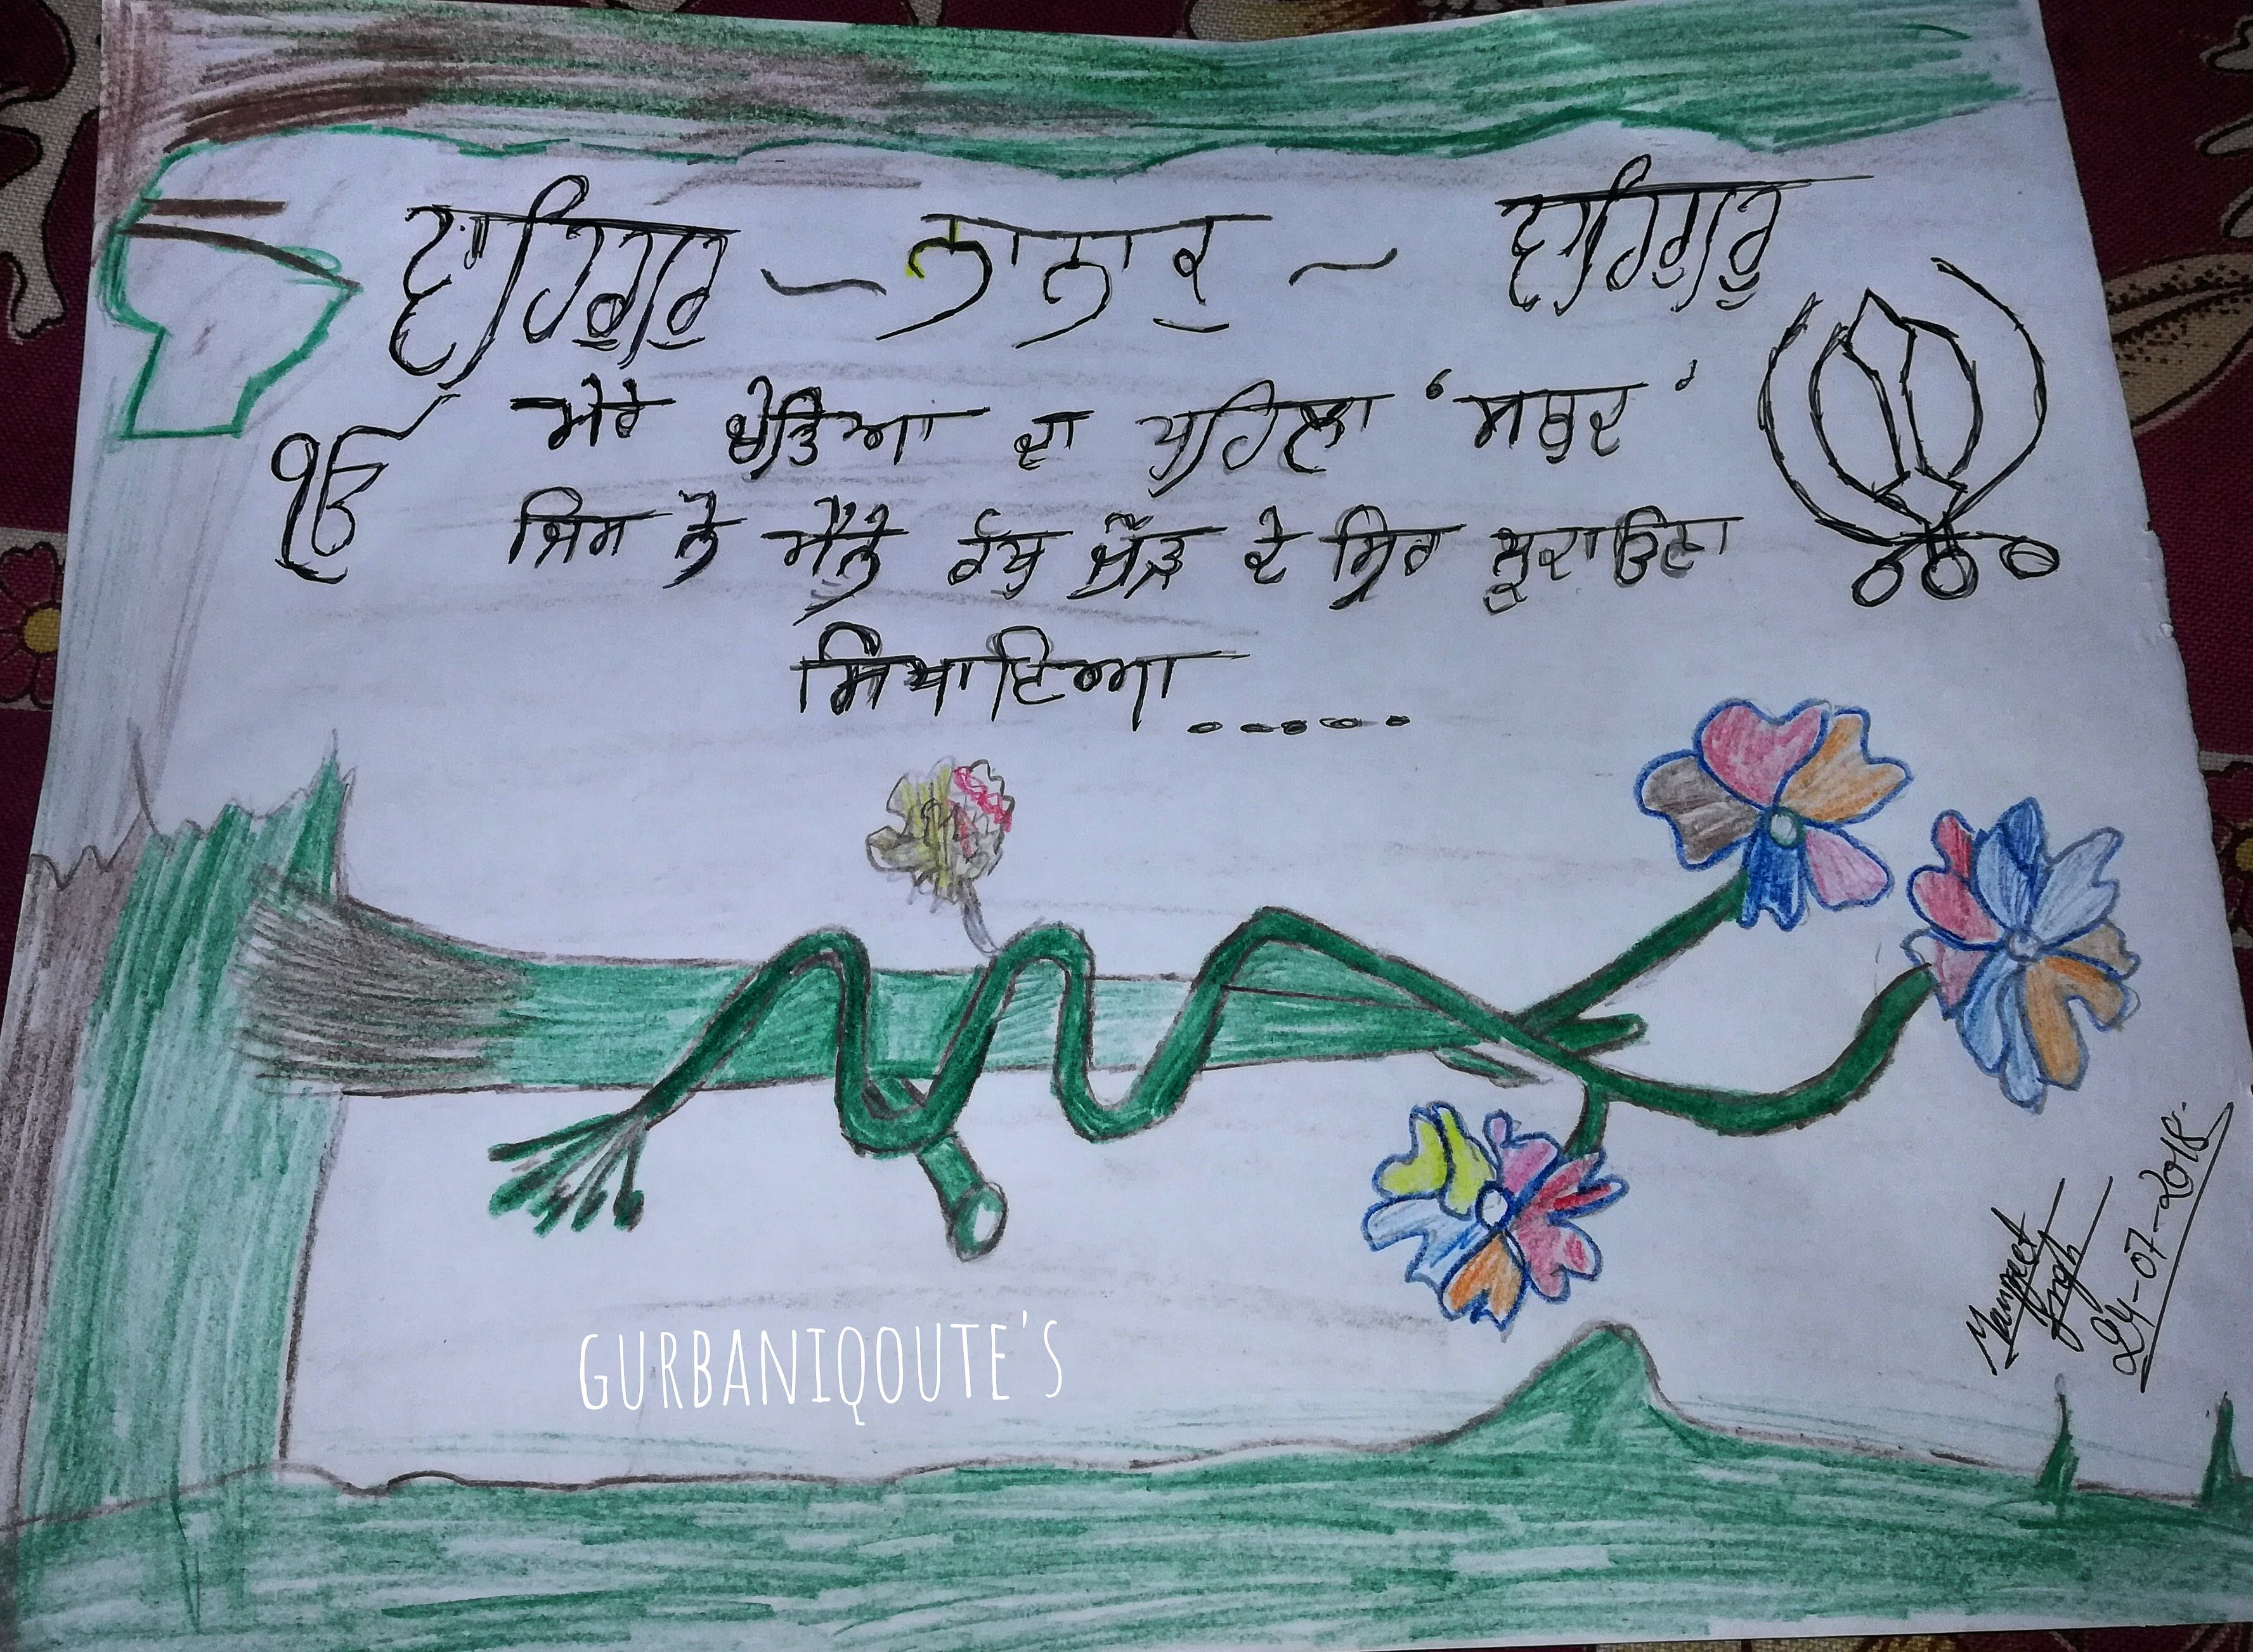 ਵਾਹਿਗੁਰੂ ~ ਨਾਨਕੁ ~ ਵਾਹਿਗੁਰੂ
ੴ
ਮੇਰੇ ਦਾ ਪਹਿਲਾ 'ਸਬਦ'
ਜਿਸ ਨੇ ਮੈਨੂੰ ਹੱਥ ਦੇ ਸਿਰ ਝੁਕਾਉਣਾ
ਸਿਖਾਇਆ......
GURBANIQOUTE'S
Manpreet
Singh
24-07-2018.